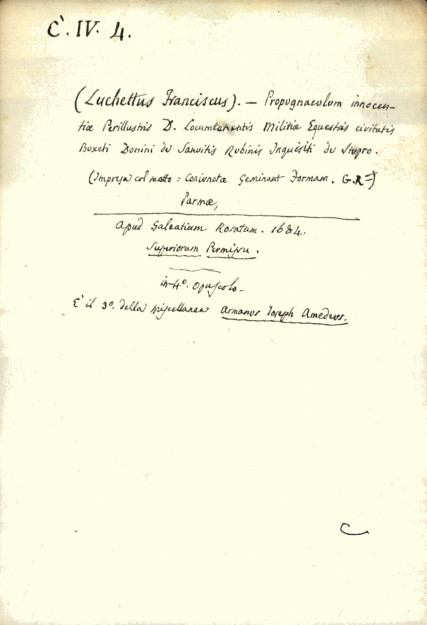 C. IV. 4.
(Luchettus Franciscus). — Propugnaculum innocen-
tiæ Perillustris D. Locumtenentis Militiæ Equestris civitatis
Buxeti Domini de Sanvitis Rubinis Inquisiti de Stupro.
(Impresa col motto: Coniunctæ Geminant Formam. G.R=)
Parmæ,
Apud Galeatium Rosatum. 1684.
Superiorum Permissu.
in-4°. Opuscolo-
E' il 9°. della Miscellanea Armanus Joseph Amedeus.
C